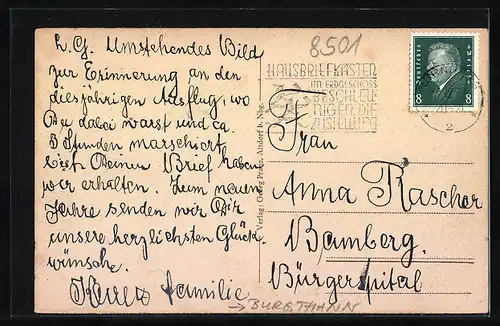 L. G. Umstehendes Bild
zur Erinnerung an den
diesjährigen Ausflug, wo
Du dabei warst und ca.
3 Stunden marschiert
bist. Deinen Brief haben
wir erhalten. Zum neuen
Jahre senden wir Dir
unsere herzlichsten Glück
wünsche.
familie
→ BURGTHANN
8501
HAUSBRIEFKÄSTEN
IM ERDGESCHOSS
BESCHLEU
NIGEN DIE
ZUSTELLUNG
Deutsches Reich
8 8
2
Verlag: Georg Franz, Altdorf b. Nbg.
Frau
Anna Rascher
Bamberg.
Bürgerspital